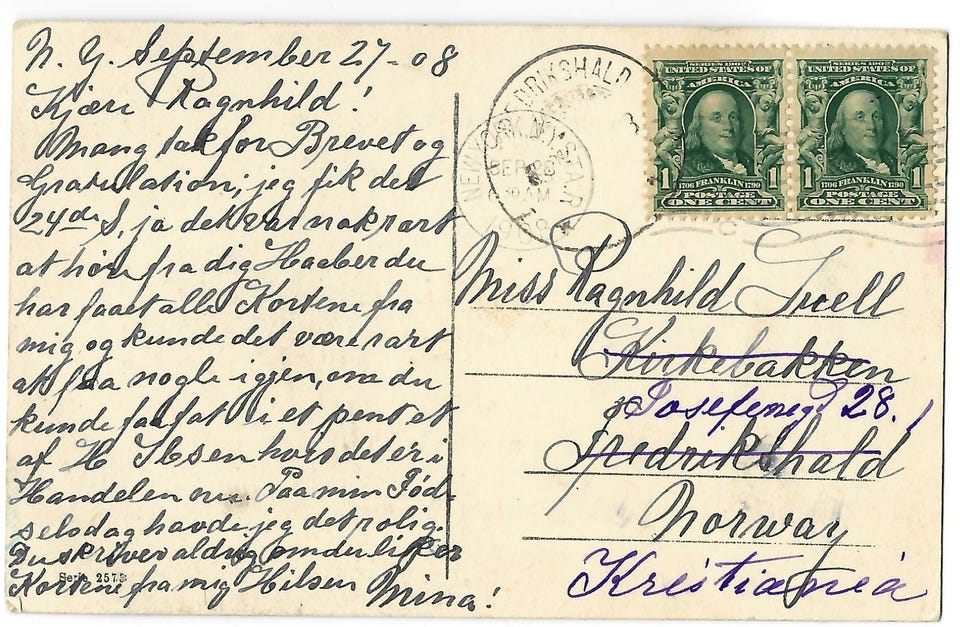 N. Y. September 27-08
Kjære Ragnhild!
Mang tak for Brevet og
Gratulation, jeg fik det
24de S, ja det var nok rart
at høre fra dig Haaber du
har faaet alle Kortene fra
mig og kunde det være rart
at faa nogle igjen, om du
kunde faa fat i et pent et
af H Ibsen hvis det er i
Handelen nu. Paa min Föd-
selsdag havde jeg det rolig.
Du skriver aldrig om du liker
Kortene fra mig Hilsen Mina!
Serie 2573
FREDRIKSHALD
NEW YORK, N.Y. STA. R
SEP 28
AM
1908
SERIES 1902
UNITED STATES OF
AMERICA
1 1
1706 FRANKLIN 1790
POSTAGE
ONE CENT
SERIES 1902
UNITED STATES OF
AMERICA
1 1
1706 FRANKLIN 1790
POSTAGE
ONE CENT
Miss Ragnhild Juell
Kirkebakken
Josefinegd 28.
Fredrikshald
Norway
Kristiania